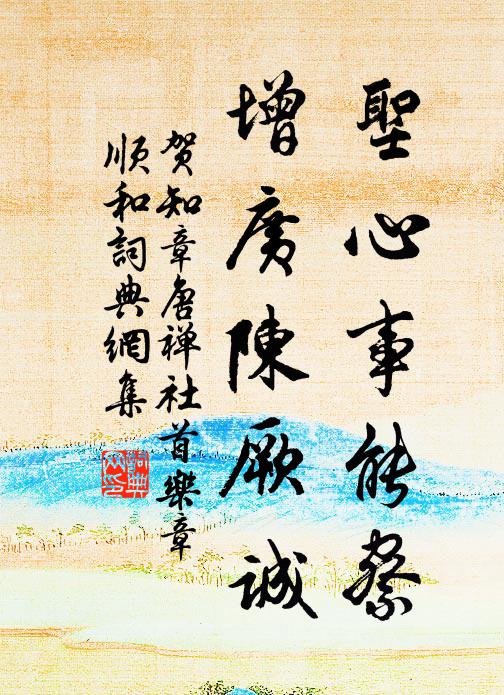 聖心事能察
增廣陳厥誠
賀知章唐禪社首樂章
順和詞典網集